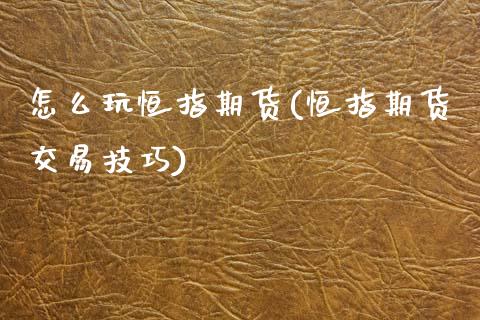 怎么玩恒指期货(恒指期货
交易技巧)